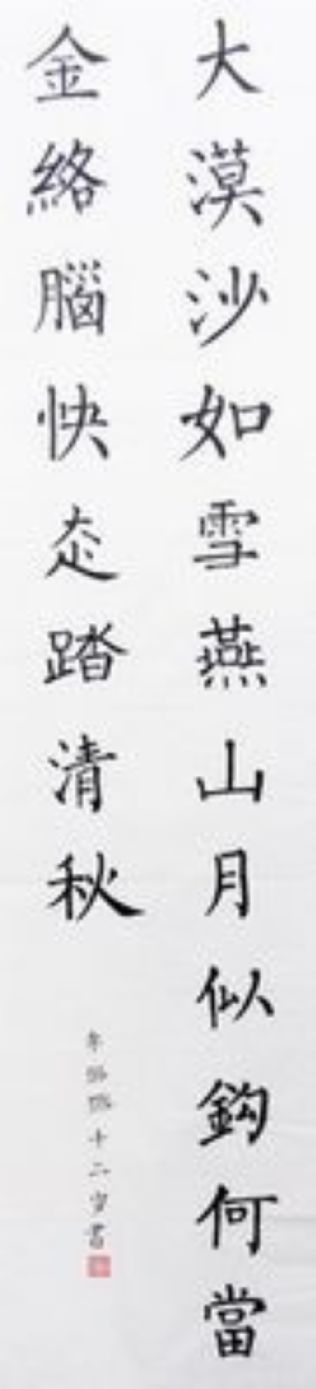 大漠沙如雪燕山月似鈎何當
金絡腦快走踏清秋
十二岁書